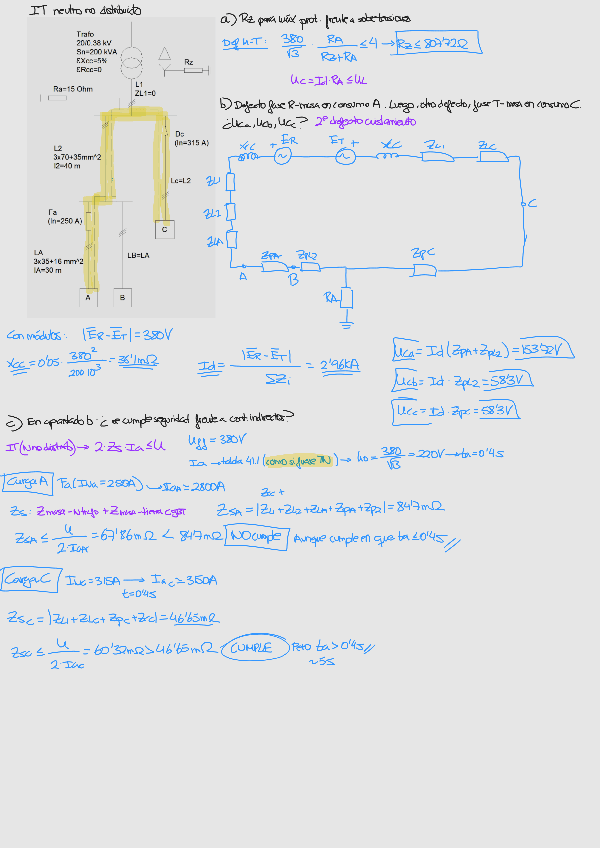 IT neutro no distribuido
Trafo
20/0.38 kV
Sn=200 kVA
EXcc=5%
ERcc=0
Rz
Ra=15 Ohm
L1
ZL1=0
Dc
(In=315 A)
L2
3x70+35mm^2
l2=40 m
Lc=L2
Fa
(In=250 A)
C
LA
3x35+16 mm^2
lA=30 m
LB=LA
A
B
a) Rz para máx prot. frente a sobretensiones
Def U-T: 380/√3 · RA/(RZ+RA) ≤ 4 → RZ ≤ 807'72Ω
Uc = Id·RA ≤ UL
b) Defecto fase R-masa en consumo A. Luego, otro defecto, fase T-masa en consumo C.
¿Uca, Ucb, Ucc? 2º defecto aislamiento
Xcc + ER ET + Xcc ZL1 ZLC
ZL1
ZL2
ZLA
C
ZPA ZPL2 ZPC
A B
RA
Con módulos: |ER - ET| = 380V
Xcc = 0'05 380²/200·10³ = 36'1mΩ
Id = |ER - ET|/ΣZi = 2'96kA
Uca = Id (ZPA + ZPL2) = 153'72V
Ucb = Id · ZPL2 = 58'3V
Ucc = Id · ZPC = 58'3V
c) En apartado b ¿se cumple seguridad frente a cont. indirectos?
IT (N no distrib) → 2·Zs Ia ≤ U
Uff = 380V
Ia → tabla 41.1 (como si fuese TN) → U0 = 380/√3 = 220V → ta = 0'4s
Carga A Fa (INa = 250A) → IaA = 2800A
Zcc +
Zs: Zmasa-Ntrafo + Zmasa-tierra cgar
ZSA = |ZL1 + ZL2 + ZLA + ZPA + ZP2| = 84'7mΩ
ZSA ≤ U/2·IaA = 67'86mΩ < 84'7mΩ NO cumple Aunque cumple en que ta ≤ 0'4s
Carga C INC = 315A → IaC = 3150A
t=0'4s
ZSC = |ZL1 + ZLC + ZPC + Zcc| = 46'65mΩ
ZSC ≤ U/2·IaC = 60'32mΩ > 46'65mΩ CUMPLE Pero ta > 0'4s
~5s